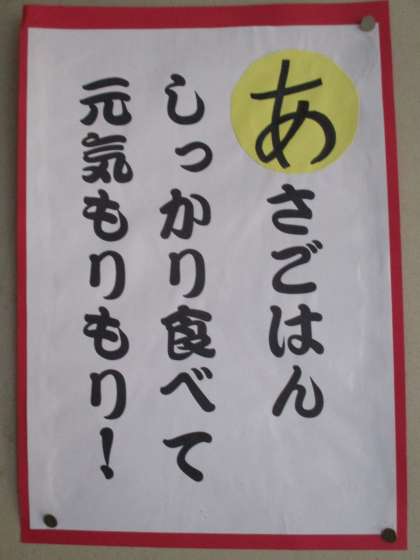 あさごはん
しっかり食べて
元気もりもり！